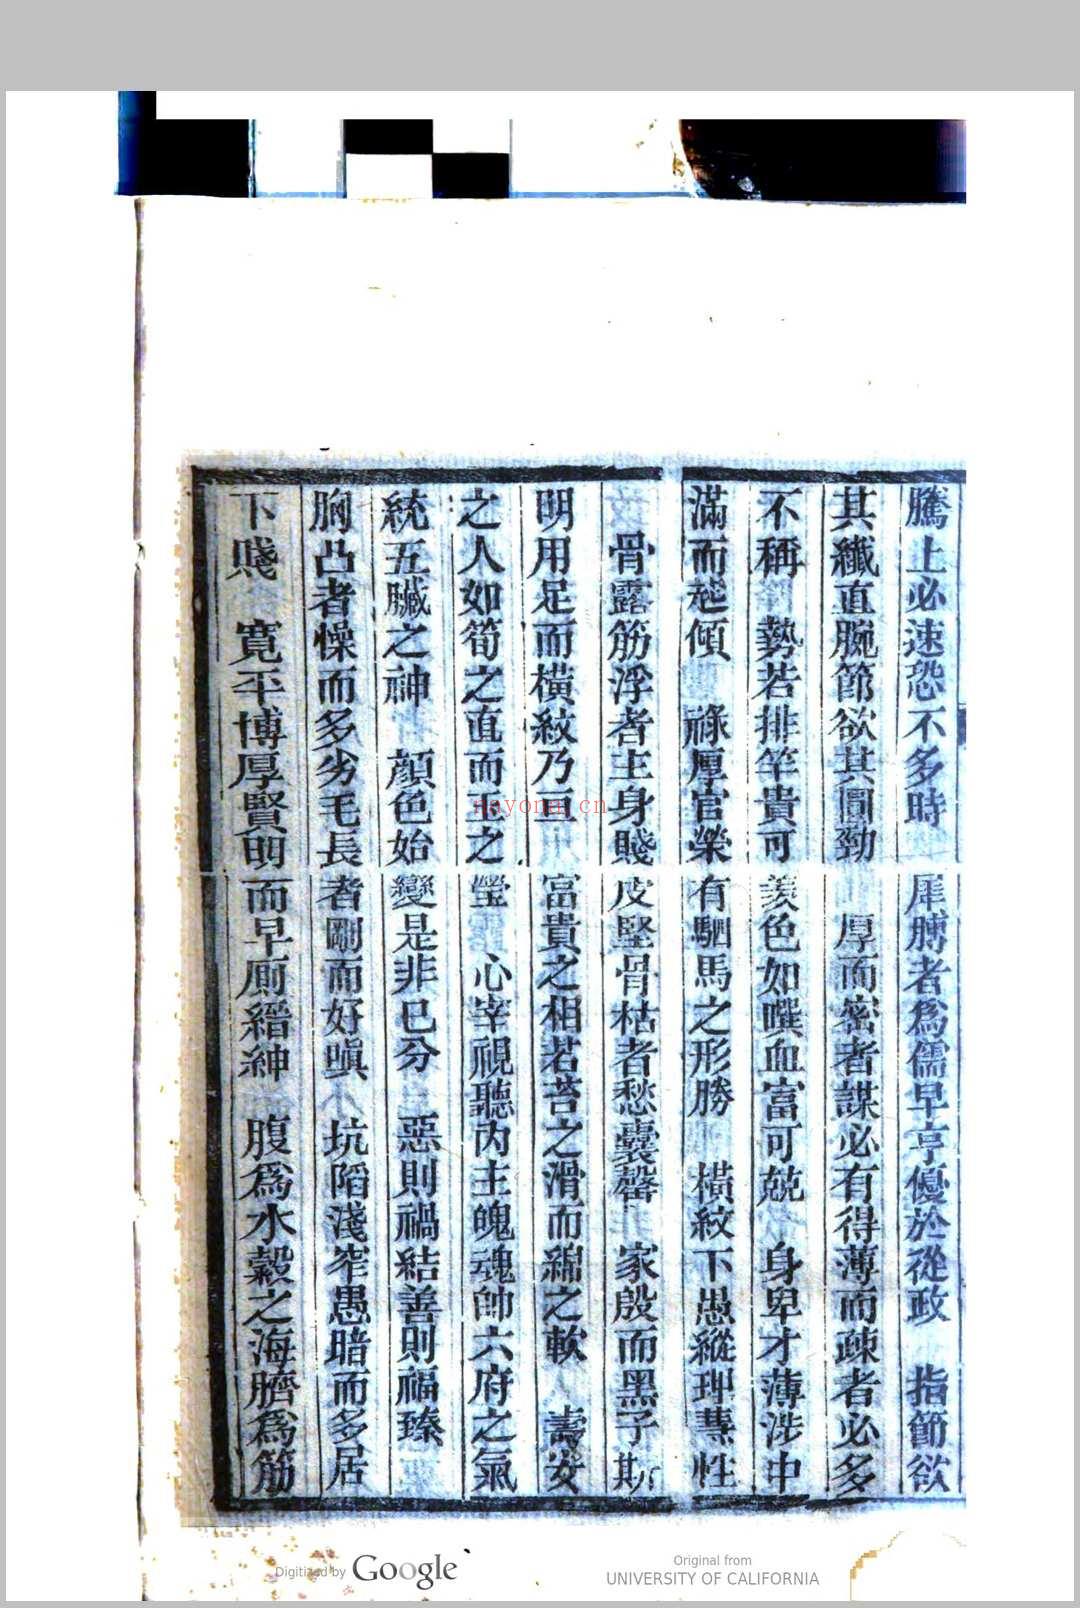 騰上必速恐不多時 犀膊者為儒早亨優於從政 指節欲
其纖直腕節欲其圓勁 厚而密者謀必有得薄而疎者必多
不稱 勢若排竿貴可羨色如噀血富可兢 身卑才薄涉中
滿而越傾 祿厚官榮有駟馬之形勝 橫紋下愚縱理慧性
骨露筋浮者主身賤皮堅骨枯者愁囊罄 家殷而黑子斯
明用足而橫紋乃亘 富貴之相若苔之滑而綿之軟 壽安
之人如筍之直而玉之瑩 心宰視聽內主魄魂帥六府之氣
統五臟之神 顏色始變是非已分 惡則禍結善則福臻
胸凸者懆而多劣毛長者剛而好嗔 坑陷淺窄愚暗而多居
下賤 寛平博厚賢明而早廁縉紳 腹為水穀之海臍為筋
nayona.cn
Digitized by Google
Original from
UNIVERSITY OF CALIFORNIA